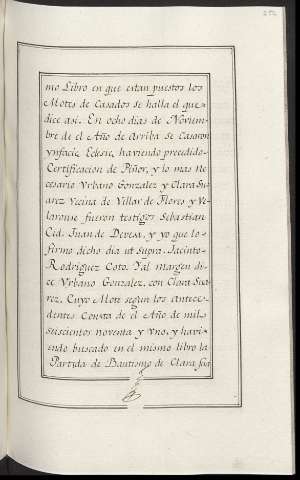 252
mo Libro en que estan puestos los
Motes de Casados se halla el que
dice asi. En ocho dias de Novium-
bre de el Año de Arriba se Casaron
ynfacie Eclesie, haviendo precedido
Certificacion de Piñor, y lo mas ne
cesario Vrbano Gonzalez y Clara Su
arez Vecina de Villar de Flores y Ve-
laronse fueron testigos Sebastian
Cid, Juan de Devesa, y yo que lo
firmo dicho dia ut supra. Jacinto
Rodriguez Coto. Yal margen di-
ce Vrbano Gonzalez, con Clara Sua
rez. Cuyo Mote segun los antece-
dentes Consta de el Año de mil
seiscientos noventa y vno. y havi-
endo buscado en el mismo libro la
Partida de Bautismo de Clara fija